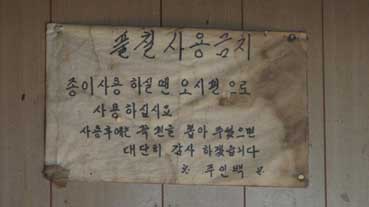 풀칠사용금지
종이사용 하실땐 오시핀 으로
사용하십시요
사용후에는 꼭 핀을 뽑아 주셨으면
대단히 감사 하겠습니다
※ 주인백 ※